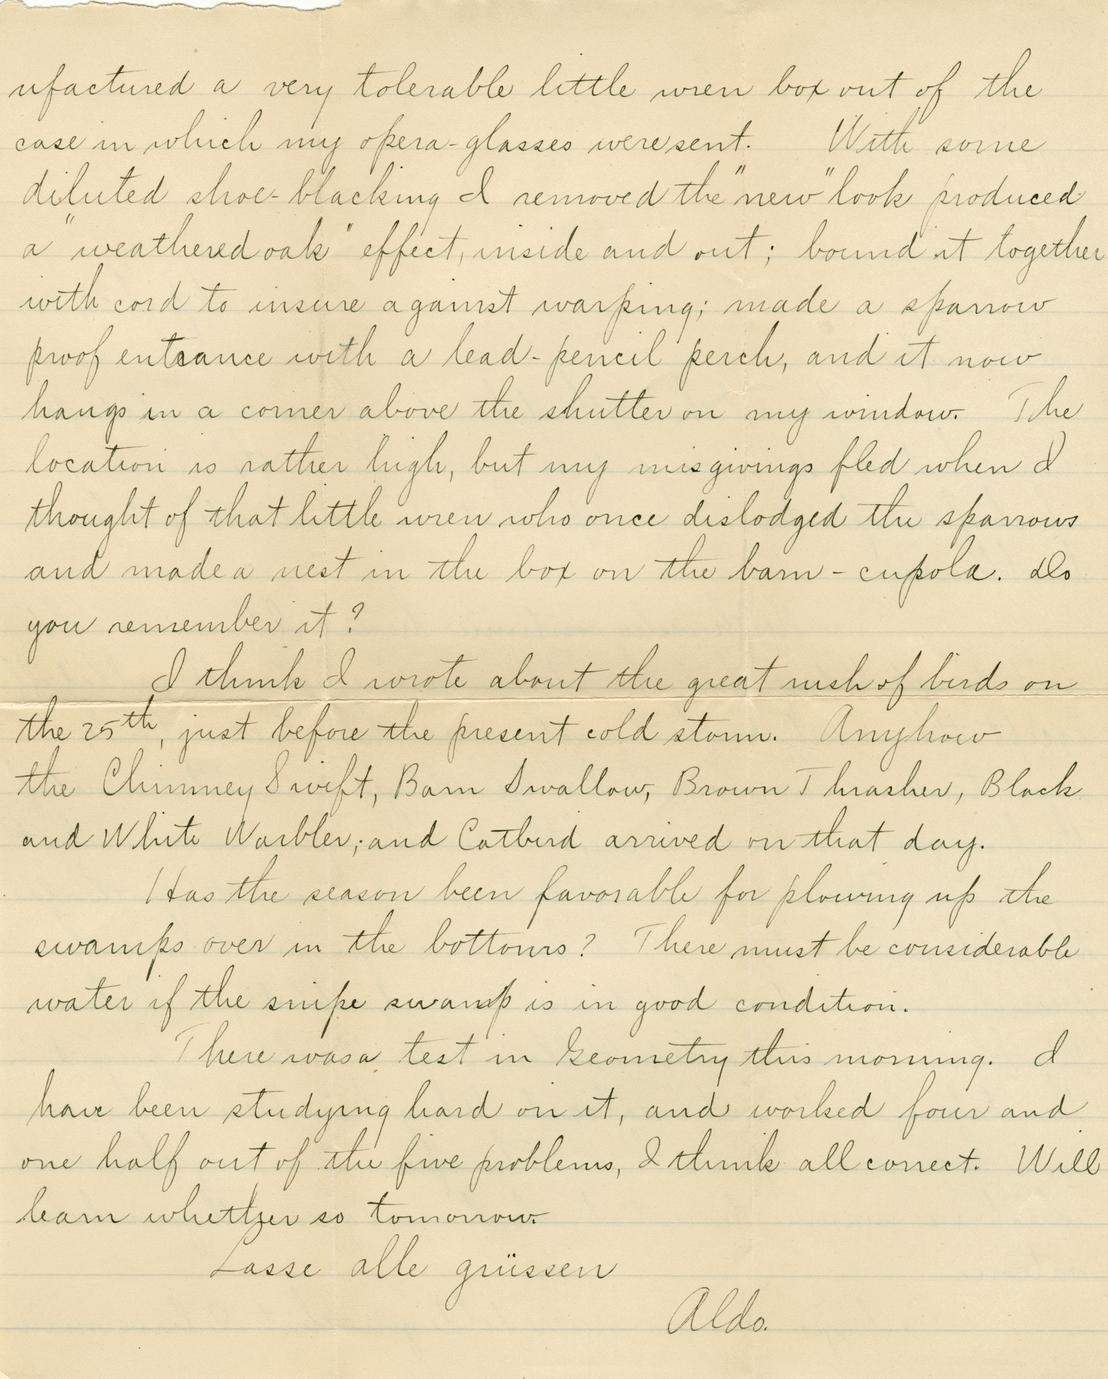 ufactured a very tolerable little wren box out of the
case in which my opera-glasses were sent. With some
diluted shoe-blacking I removed the "new" look produced
a "weathered oak" effect, inside and out; bound it together
with cord to insure against warping; made a sparrow
proof entrance with a lead-pencil perch, and it now
hangs in a corner above the shutter on my window. The
location is rather high, but my misgivings fled when I
thought of that little wren who once dislodged the sparrows
and made a nest in the box on the barn-cupola. Do
you remember it?
I think I wrote about the great rush of birds on
the 25th, just before the present cold storm. Anyhow
the Chimney Swift, Barn Swallow, Brown Thrasher, Black
and White Warbler, and Catbird arrived on that day.
Has the season been favorable for plowing up the
swamps over in the bottoms? There must be considerable
water if the snipe swamp is in good condition.
There was a test in Geometry this morning. I
have been studying hard on it, and worked four and
one half out of the five problems, I think all correct. Will
learn whether so tomorrow.
Lasse alle grüssen
Aldo.